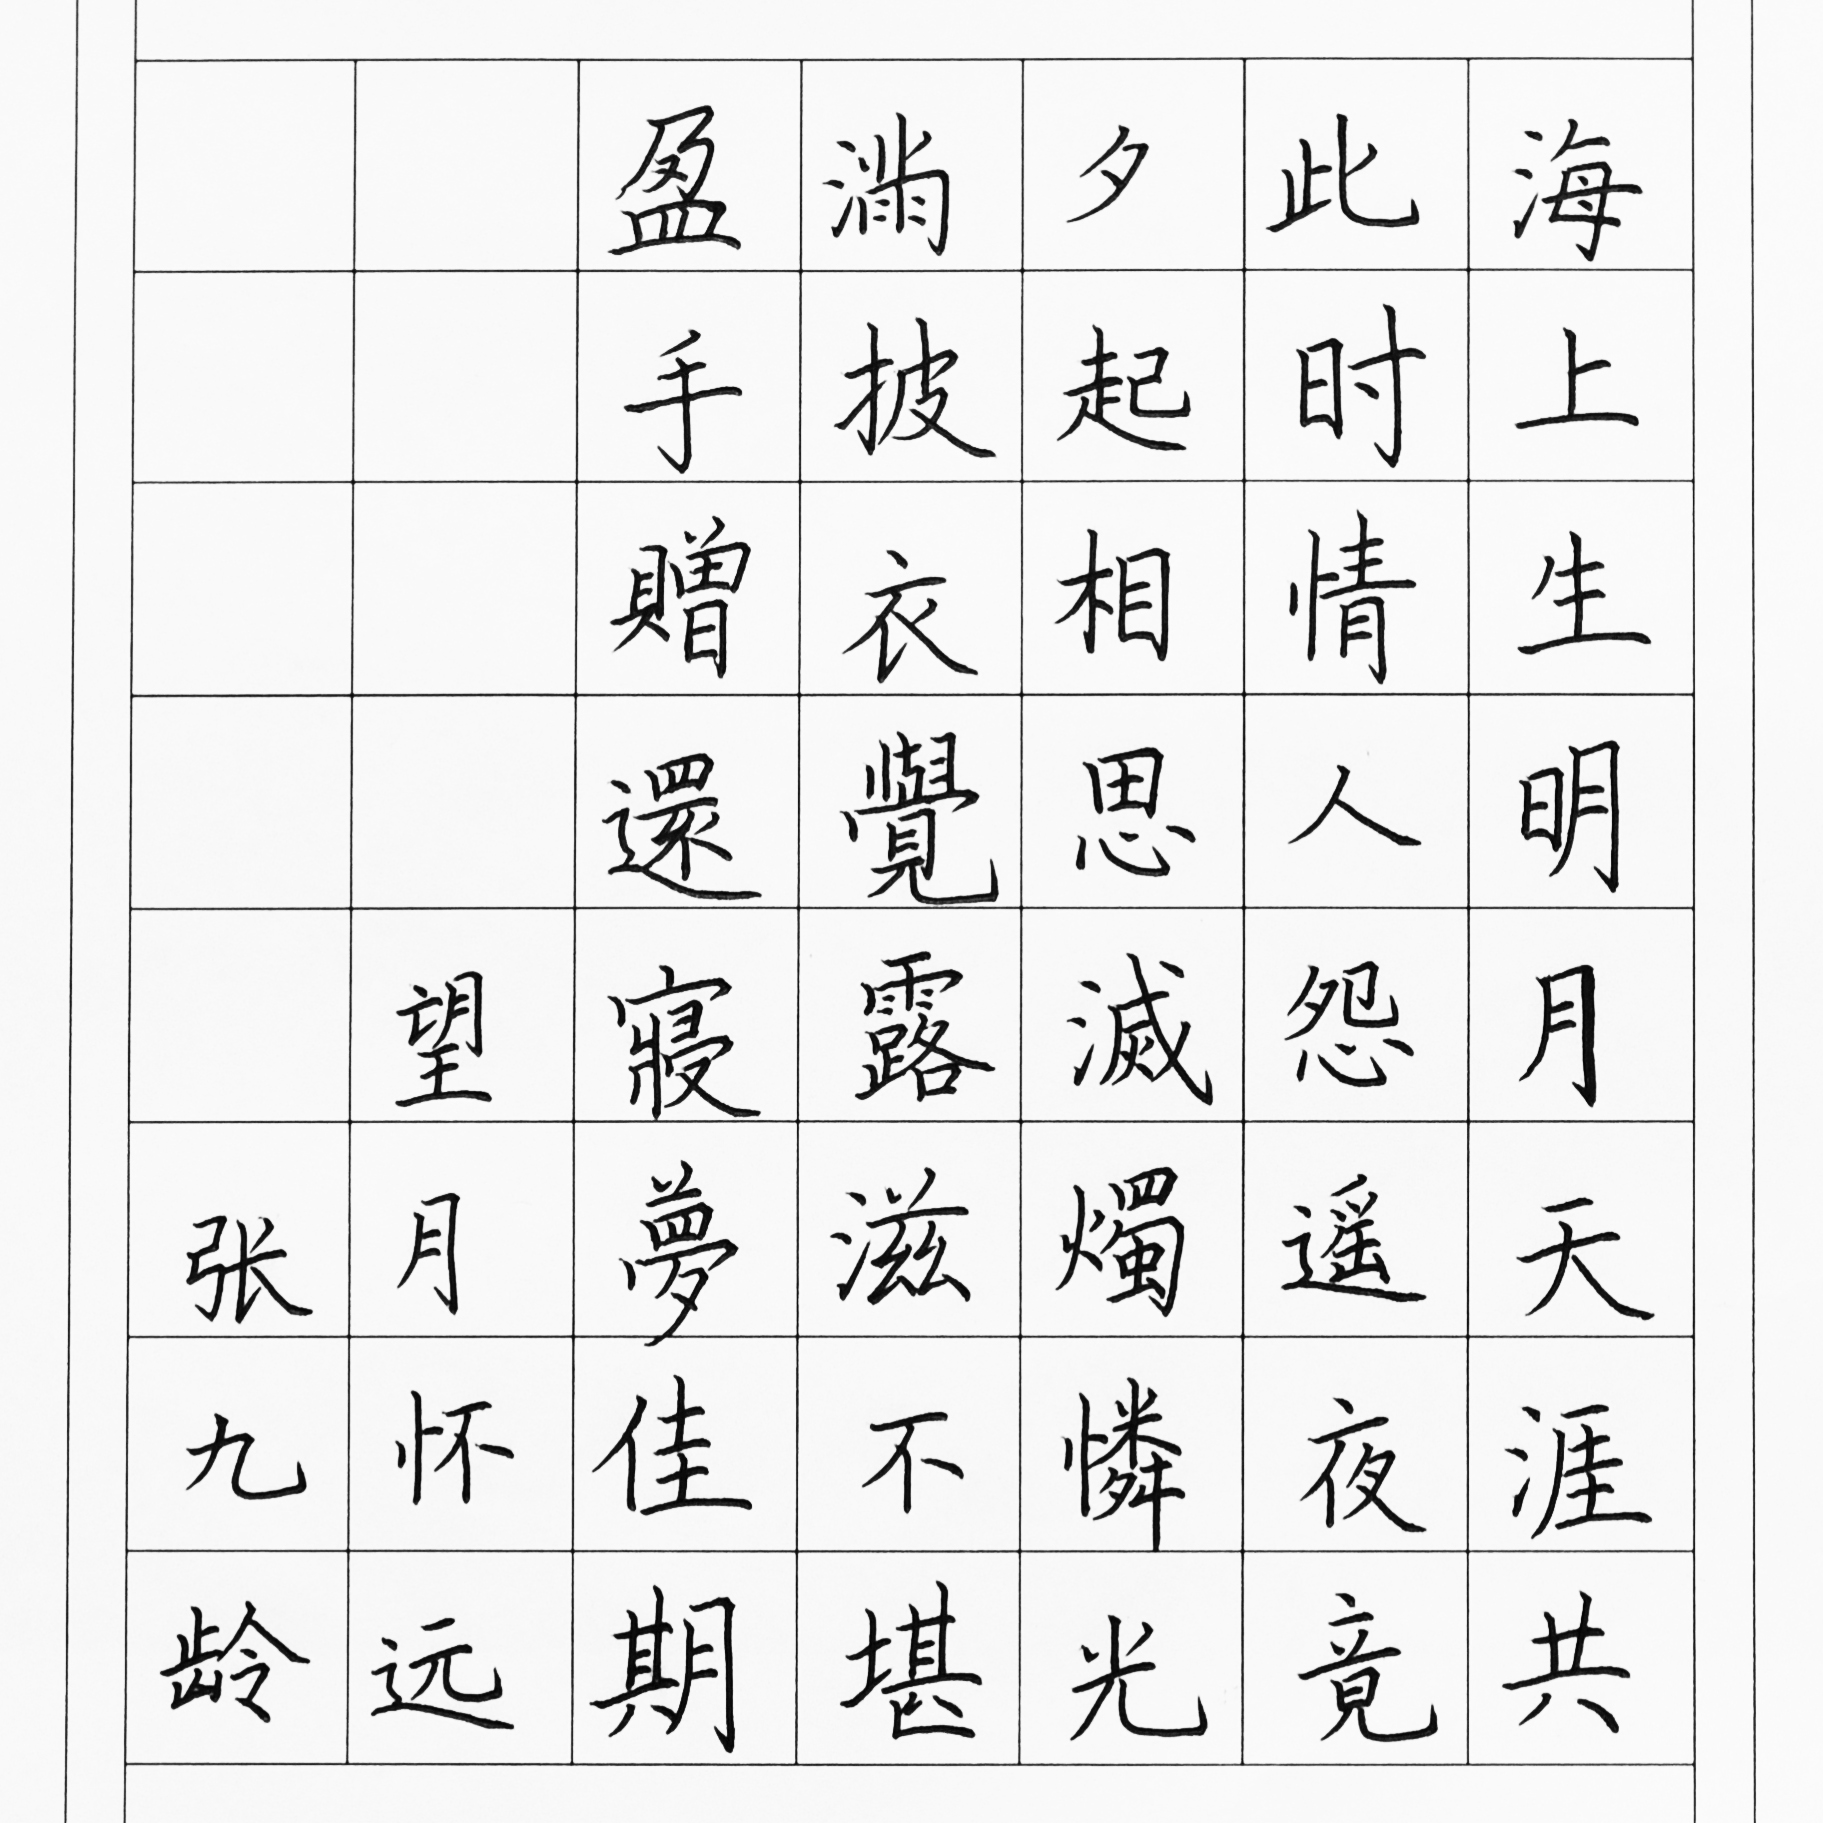 海上生明月天涯共
此时情人怨遥夜竟
夕起相思滅燭憐光
滿披衣覺露滋不堪
盈手贈還寢夢佳期
望月怀远
张九龄